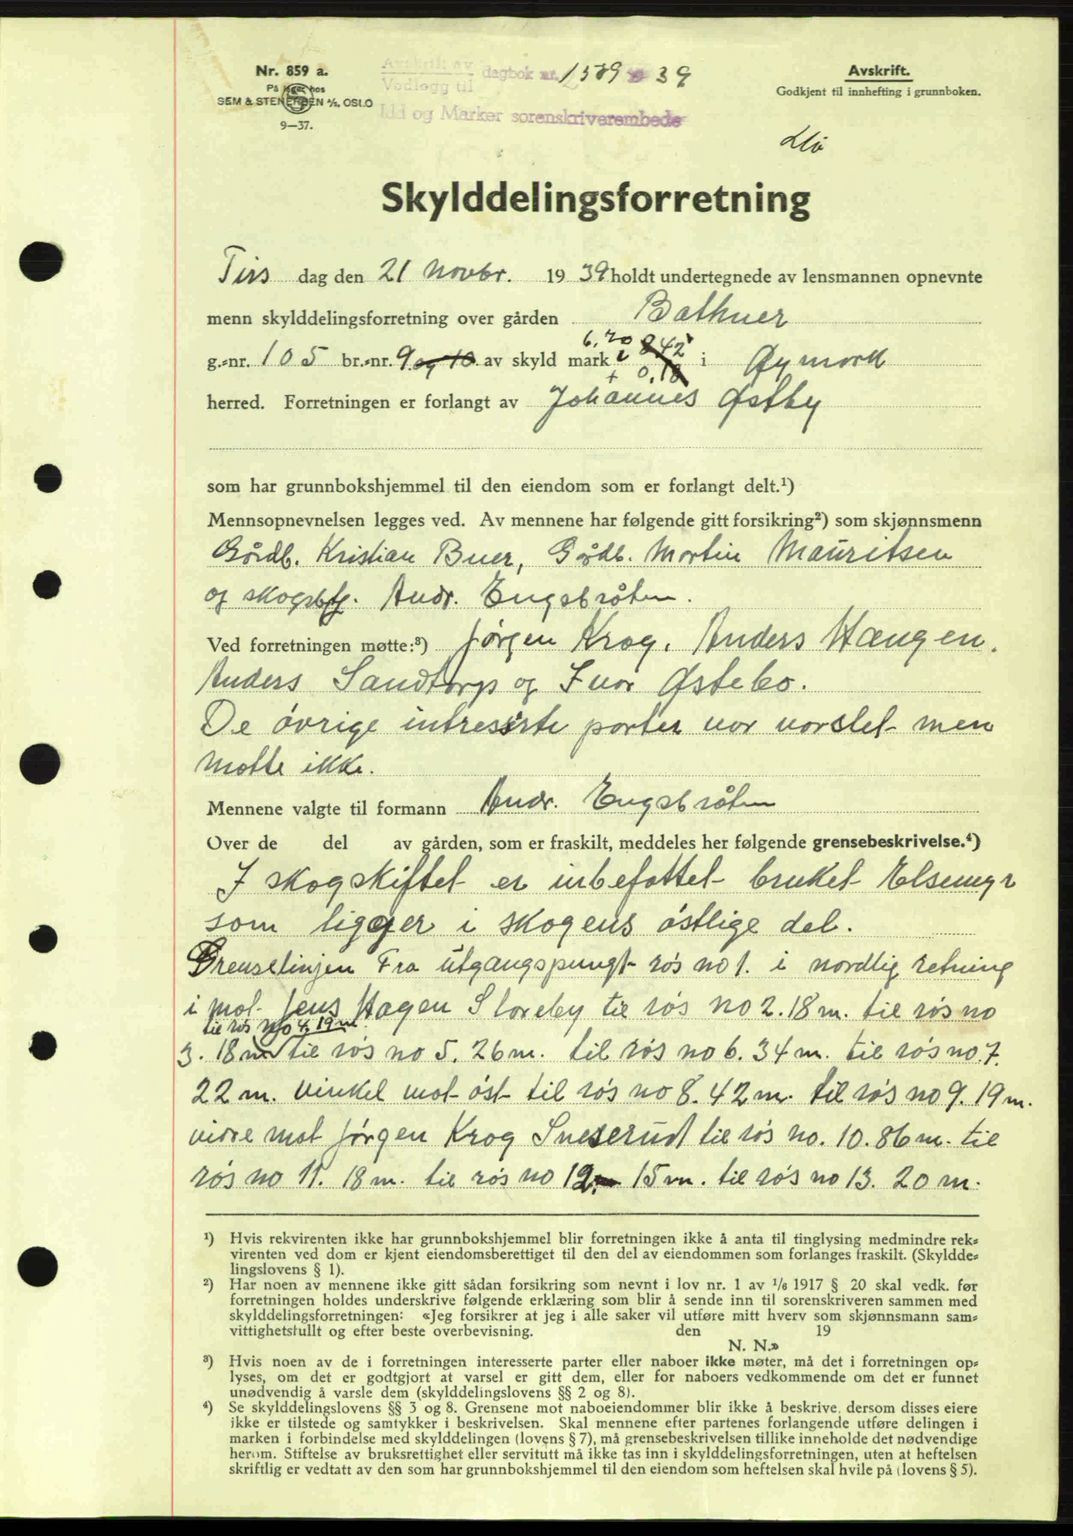 Nr. 859 a.
På lager hos
SEM & STENERSEN A/S, OSLO
9—37.
Avskrift av
Vedlegg til
dagbok nr. 1579 39
Idd og Marker sorenskriverembede
Avskrift.
Godkjent til innhefting i grunnboken.
Skylddelingsforretning
Tirs dag den 21 Novbr. 19 39 holdt undertegnede av lensmannen opnevnte
menn skylddelingsforretning over gården Båthuer
g.-nr. 105 br.-nr. 9 og 10 av skyld mark 6.70 8 42 + 0.18 i Øymark
herred. Forretningen er forlangt av Johannes Østby
som har grunnbokshjemmel til den eiendom som er forlangt delt.¹)
Mennsopnevnelsen legges ved. Av mennene har følgende gitt forsikring²) som skjønnsmenn
Gårdb. Kristian Buer, Gårdb. Martin Mauritsen
og skogsbfg. Andr. Engsbråten.
Ved forretningen møtte:³) Jørgen Krog, Anders Haugen.
Anders Sandtorp og Ivar Østebo.
De øvrige intresserte parter var varslet men
møtte ikke.
Mennene valgte til formann Andr. Engsbråten
Over de del av gården, som er fraskilt, meddeles her følgende grensebeskrivelse.⁴)
I skogskiftet er inbefattet bruket Elsemyr
som ligger i skogens østlige del.
Grenselinjen Fra utgangspungt røs no 1. i nordlig retning
i mot Jens Hagen Sloreby til røs no 2. 18 m. til røs no
til røs no 4. 19 m.
3. 18 m til røs no 5. 26 m. til røs no 6. 34 m. til røs no. 7.
22 m. vinkel mot øst til røs no 8. 42 m. til røs no 9. 19 m.
vidre mot Jørgen Krog Sneserud til røs no. 10. 86 m. til
røs no 11. 18 m. til røs no 12. 15 m. til røs no 13. 20 m.
¹) Hvis rekvirenten ikke har grunnbokshjemmel blir forretningen ikke å anta til tinglysing medmindre rek-
virenten ved dom er kjent eiendomsberettiget til den del av eiendommen som forlanges fraskilt. (Skyldde-
lingslovens § 1).
²) Har noen av mennene ikke gitt sådan forsikring som nevnt i lov nr. 1 av 1/6 1917 § 20 skal vedk. før
forretningen holdes underskrive følgende erklæring som blir å sende inn til sorenskriveren sammen med
skylddelingsforretningen: «Jeg forsikrer at jeg i alle saker vil utføre mitt hverv som skjønnsmann sam-
vittighetsfullt og efter beste overbevisning. den 19
N. N.»
³) Hvis noen av de i forretningen interesserte parter eller naboer ikke møter, må det i forretningen op-
lyses, om det er godtgjort at varsel er gitt dem, eller for naboers vedkommende om det er funnet
unødvendig å varsle dem (skylddelingslovens §§ 2 og 8).
⁴) Se skylddelingslovens §§ 3 og 8. Grensene mot naboeiendommer blir ikke å beskrive, dersom disses eiere
ikke er tilstede og samtykker i beskrivelsen. Skal mennene efter partenes forlangende utføre delingen i
marken i forbindelse med skylddelingen (lovens § 7), må grensebeskrivelsen tillike inneholde det nødvendige
herom. Stiftelse av bruksrettighet eller servitutt må ikke tas inn i skylddelingsforretningen, uten at heftelsen
skriftlig er vedtatt av den som har grunnbokshjemmel til den eiendom som heftelsen skal hvile på (lovens § 5).